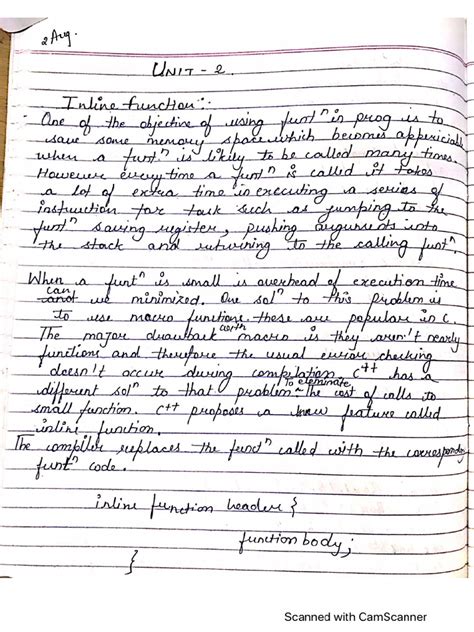 2 Aug.
UNIT - 2
Inline function :-
One of the objective of using funtⁿ in prog is to
save some memory space which becomes appericiable
when a funtⁿ is likely to be called many times.
However everytime a funtⁿ is called it takes
a lot of extra time in executing a series of
instruction for task such as jumping to the
funtⁿ saving register, pushing arguments into
the stack and returning to the calling funtⁿ.
When a funtⁿ is small is overhead of execution time
can be minimized. One solⁿ to this problem is
to use macro functions. these are popular in C.
The major drawback with macro is they aren't nearly
functions and therefore the usual error checking
doesn't occur during compilation. C++ has a
different solⁿ to that problem. To eleminate the cost of calls to
small function. C++ proposes a new feature called
inline function.
The compiler replaces the functⁿ called with the corresponding
funtⁿ code.
inline function header {
function body;
}
Scanned with CamScanner